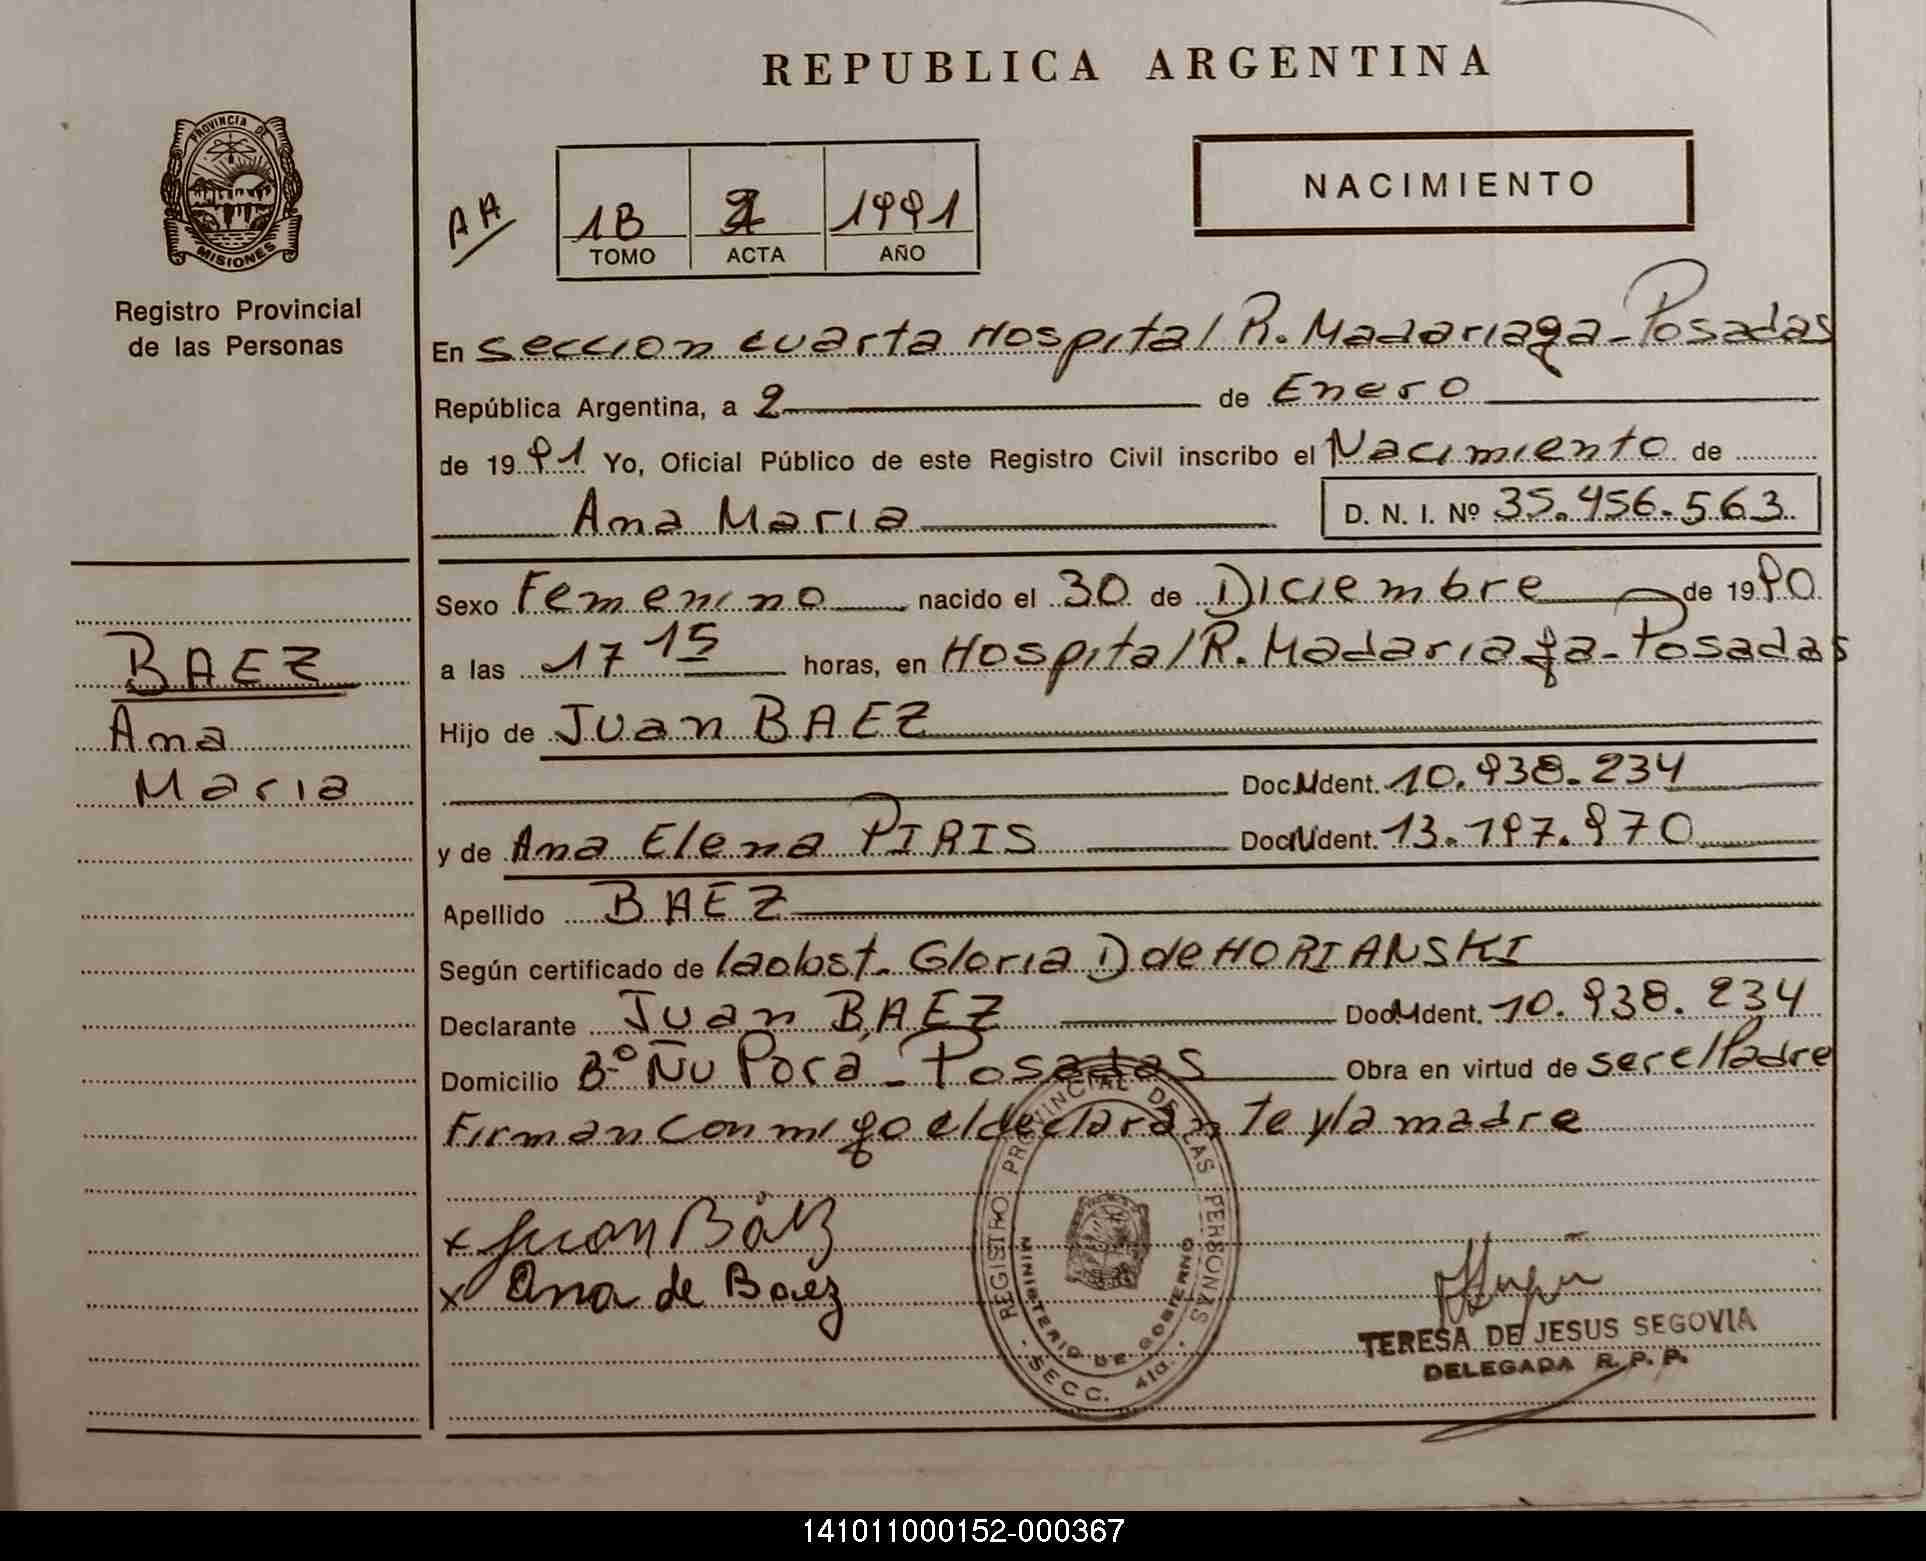 REPUBLICA ARGENTINA
PROVINCIA DE
MISIONES
Registro Provincial
de las Personas
AA
1B 2 1991
TOMO ACTA AÑO
NACIMIENTO
En seccion cuarta Hospital R. Madariaga - Posadas
República Argentina, a 2 de Enero
de 1991 Yo, Oficial Público de este Registro Civil inscribo el Nacimiento de
Ana Maria D. N. I. Nº 35.456.563
Sexo Femenino nacido el 30 de Diciembre de 1990
a las 17 15 horas, en Hospital R. Madariaga - Posadas
Hijo de Juan BAEZ
Doc. Ident. 10.938.234
y de Ana Elena PIRIS Doc. Ident. 13.197.970
Apellido BAEZ
Según certificado de la obst. Gloria D de HORIANSKI
Declarante Juan BAEZ Doc. Ident. 10.938.234
Domicilio B.º Ñu Porá - Posadas Obra en virtud de ser el Padre
Firman conmigo el declarante y la madre
x Juan Báez
x Ana de Baez
BAEZ
Ana
Maria
REGISTRO PROVINCIAL DE LAS PERSONAS
MINISTERIO DE GOBIERNO
- SECC. 4ta. -
TERESA DE JESUS SEGOVIA
DELEGADA R. P. P.
141011000152-000367